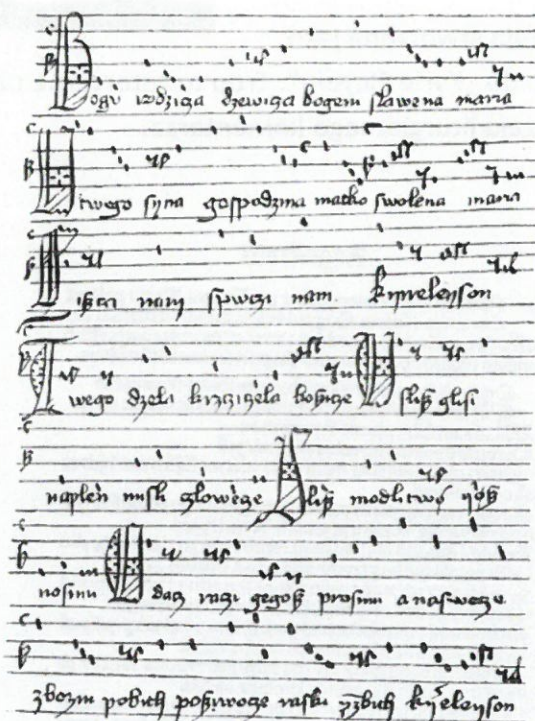 Bogu rodzicza dzewicza bogem slawena maria
U twego syna gospodzina matko swolena maria
Siszczi nam spwczi nam kyrieleyson
Twego dzela krzcziczela boszicze Uslisz glosi
naplen misli czlowecze Slisz modlitwo yosz
nosimi U dacz raczi gegosz prosimi a naswecze
zbozni pobith poszywocze raski przebith kyrieleyson